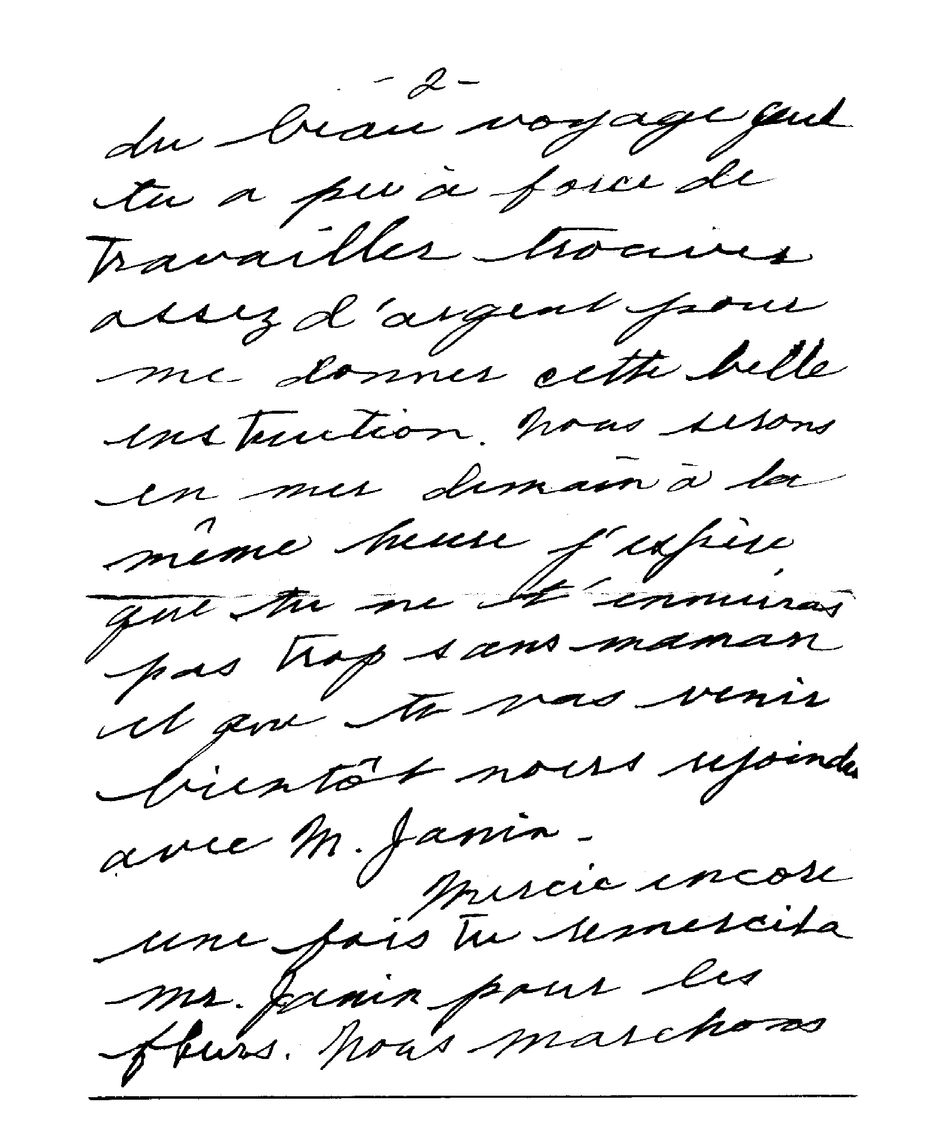 - 2 -
du beau voyage que
tu a pu à force de
Travailler trouver
assez d'argent pour
me donner cette belle
instruction. Nous serons
en mer demain à la
même heure j'espère
que tu ne t'ennuiras
pas trop sans maman
et que tu vas venir
bientôt nous rejoindre
avec M. Janin -
Mercie encore
une fois tu remercila
Mr. Janin pour les
fleurs. Nous marchons